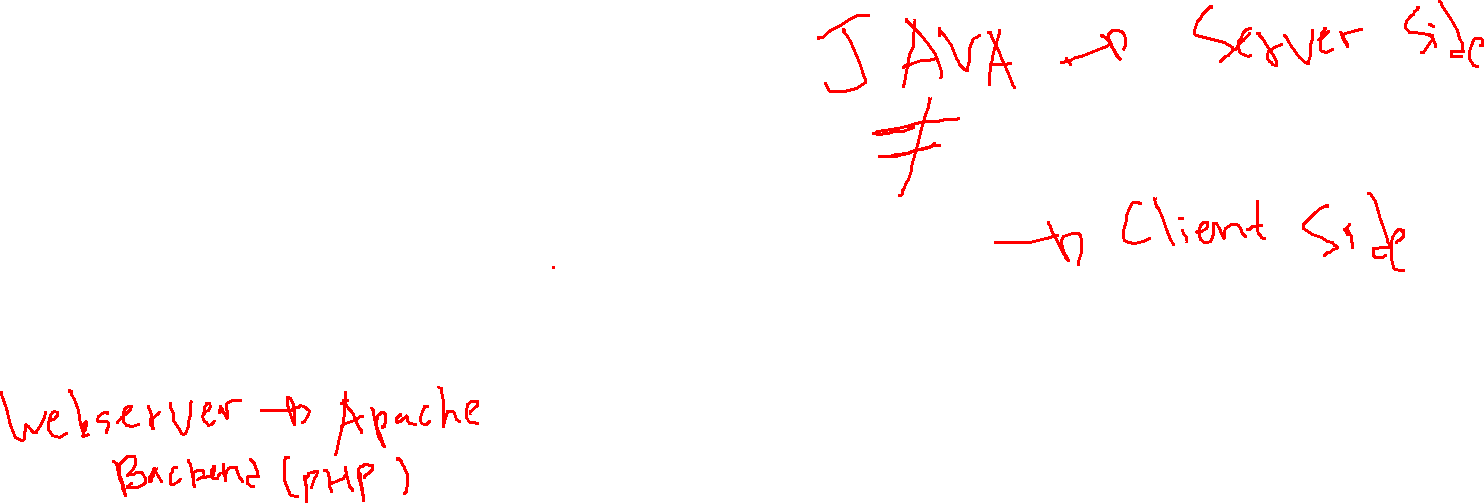 JAVA → Server Side
≠
→ Client Side
Webserver → Apache
Backend (PHP)